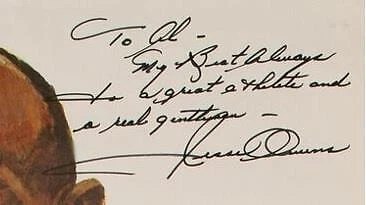 To Al -
My Best Always
to a great athlete and
a real gentleman -
Jesse Owens